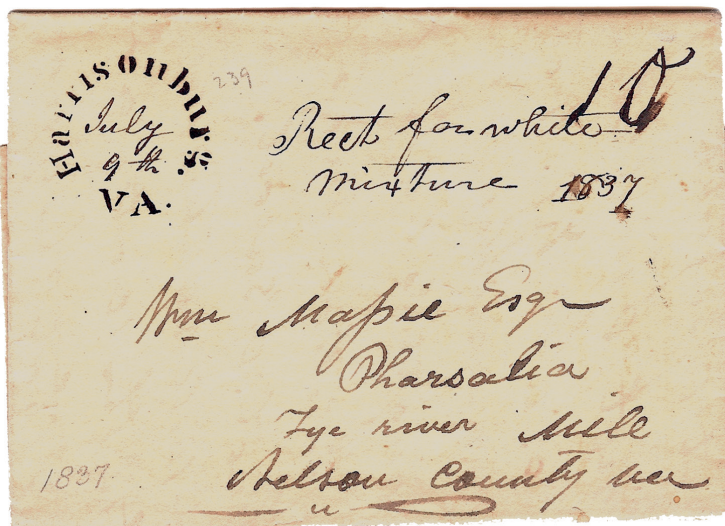 Harrisonburg.
July
9th
VA.
239
10
Rect for white
mixture 1837
Wm Maſsie Esqr
Pharsalia
Tye river Mill
Nelson County Va
1837